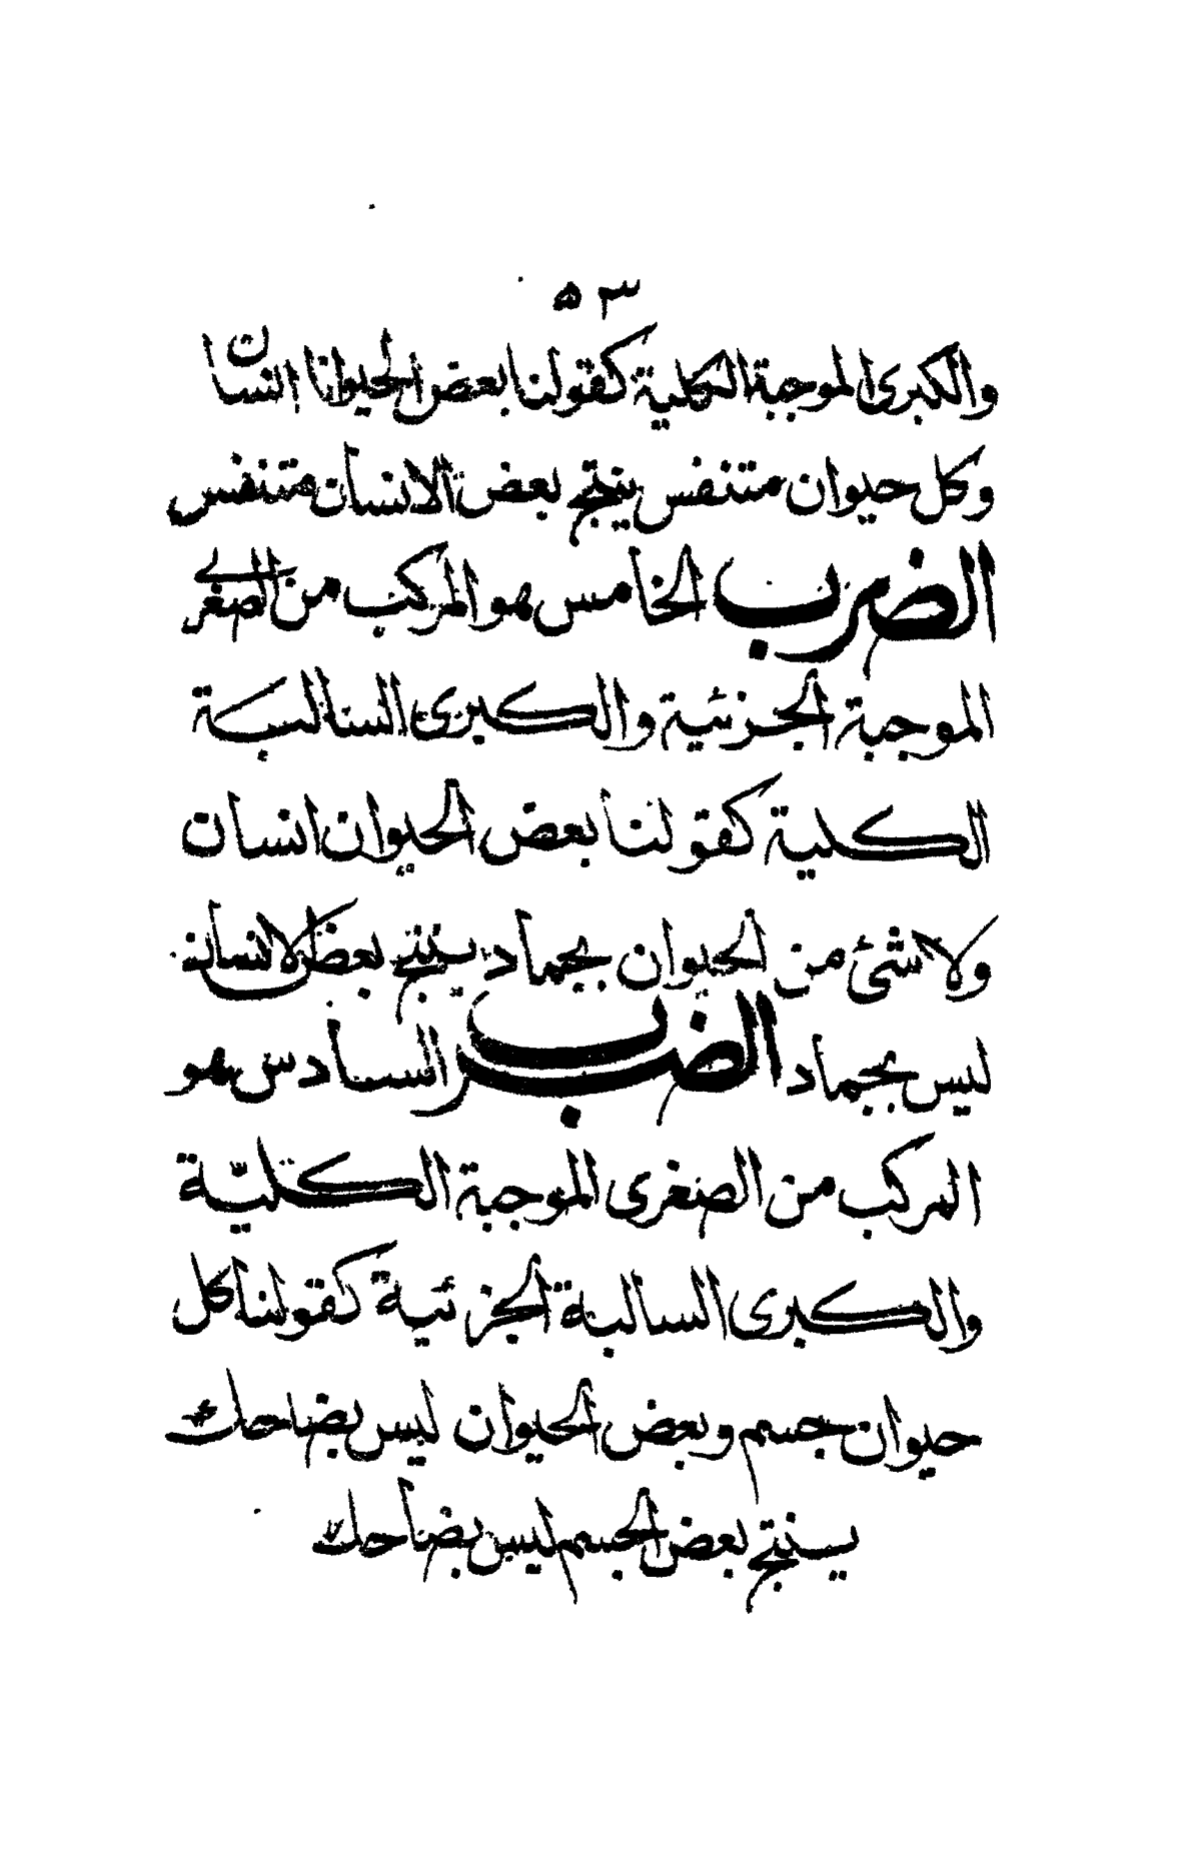 ٥٣
والكبرى الموجبة الكلية كقولنا بعض الحيوانا انسان
وكل حيوان متنفس ينتج بعض الانسان متنفس
الضرب الخامس هو المركب من الصغرى
الموجبة الجزئية والكبرى السالبة
الكلية كقولنا بعض الحيوان انسان
ولا شئ من الحيوان بجماد ينتج بعض الانسان
ليس بجماد الضرب السادس هو
المركب من الصغرى الموجبة الكليّة
والكبرى السالبة الجزئية كقولنا كل
حيوان جسم وبعض الحيوان ليس بضاحك
ينتج بعض الجسم ليس بضاحك